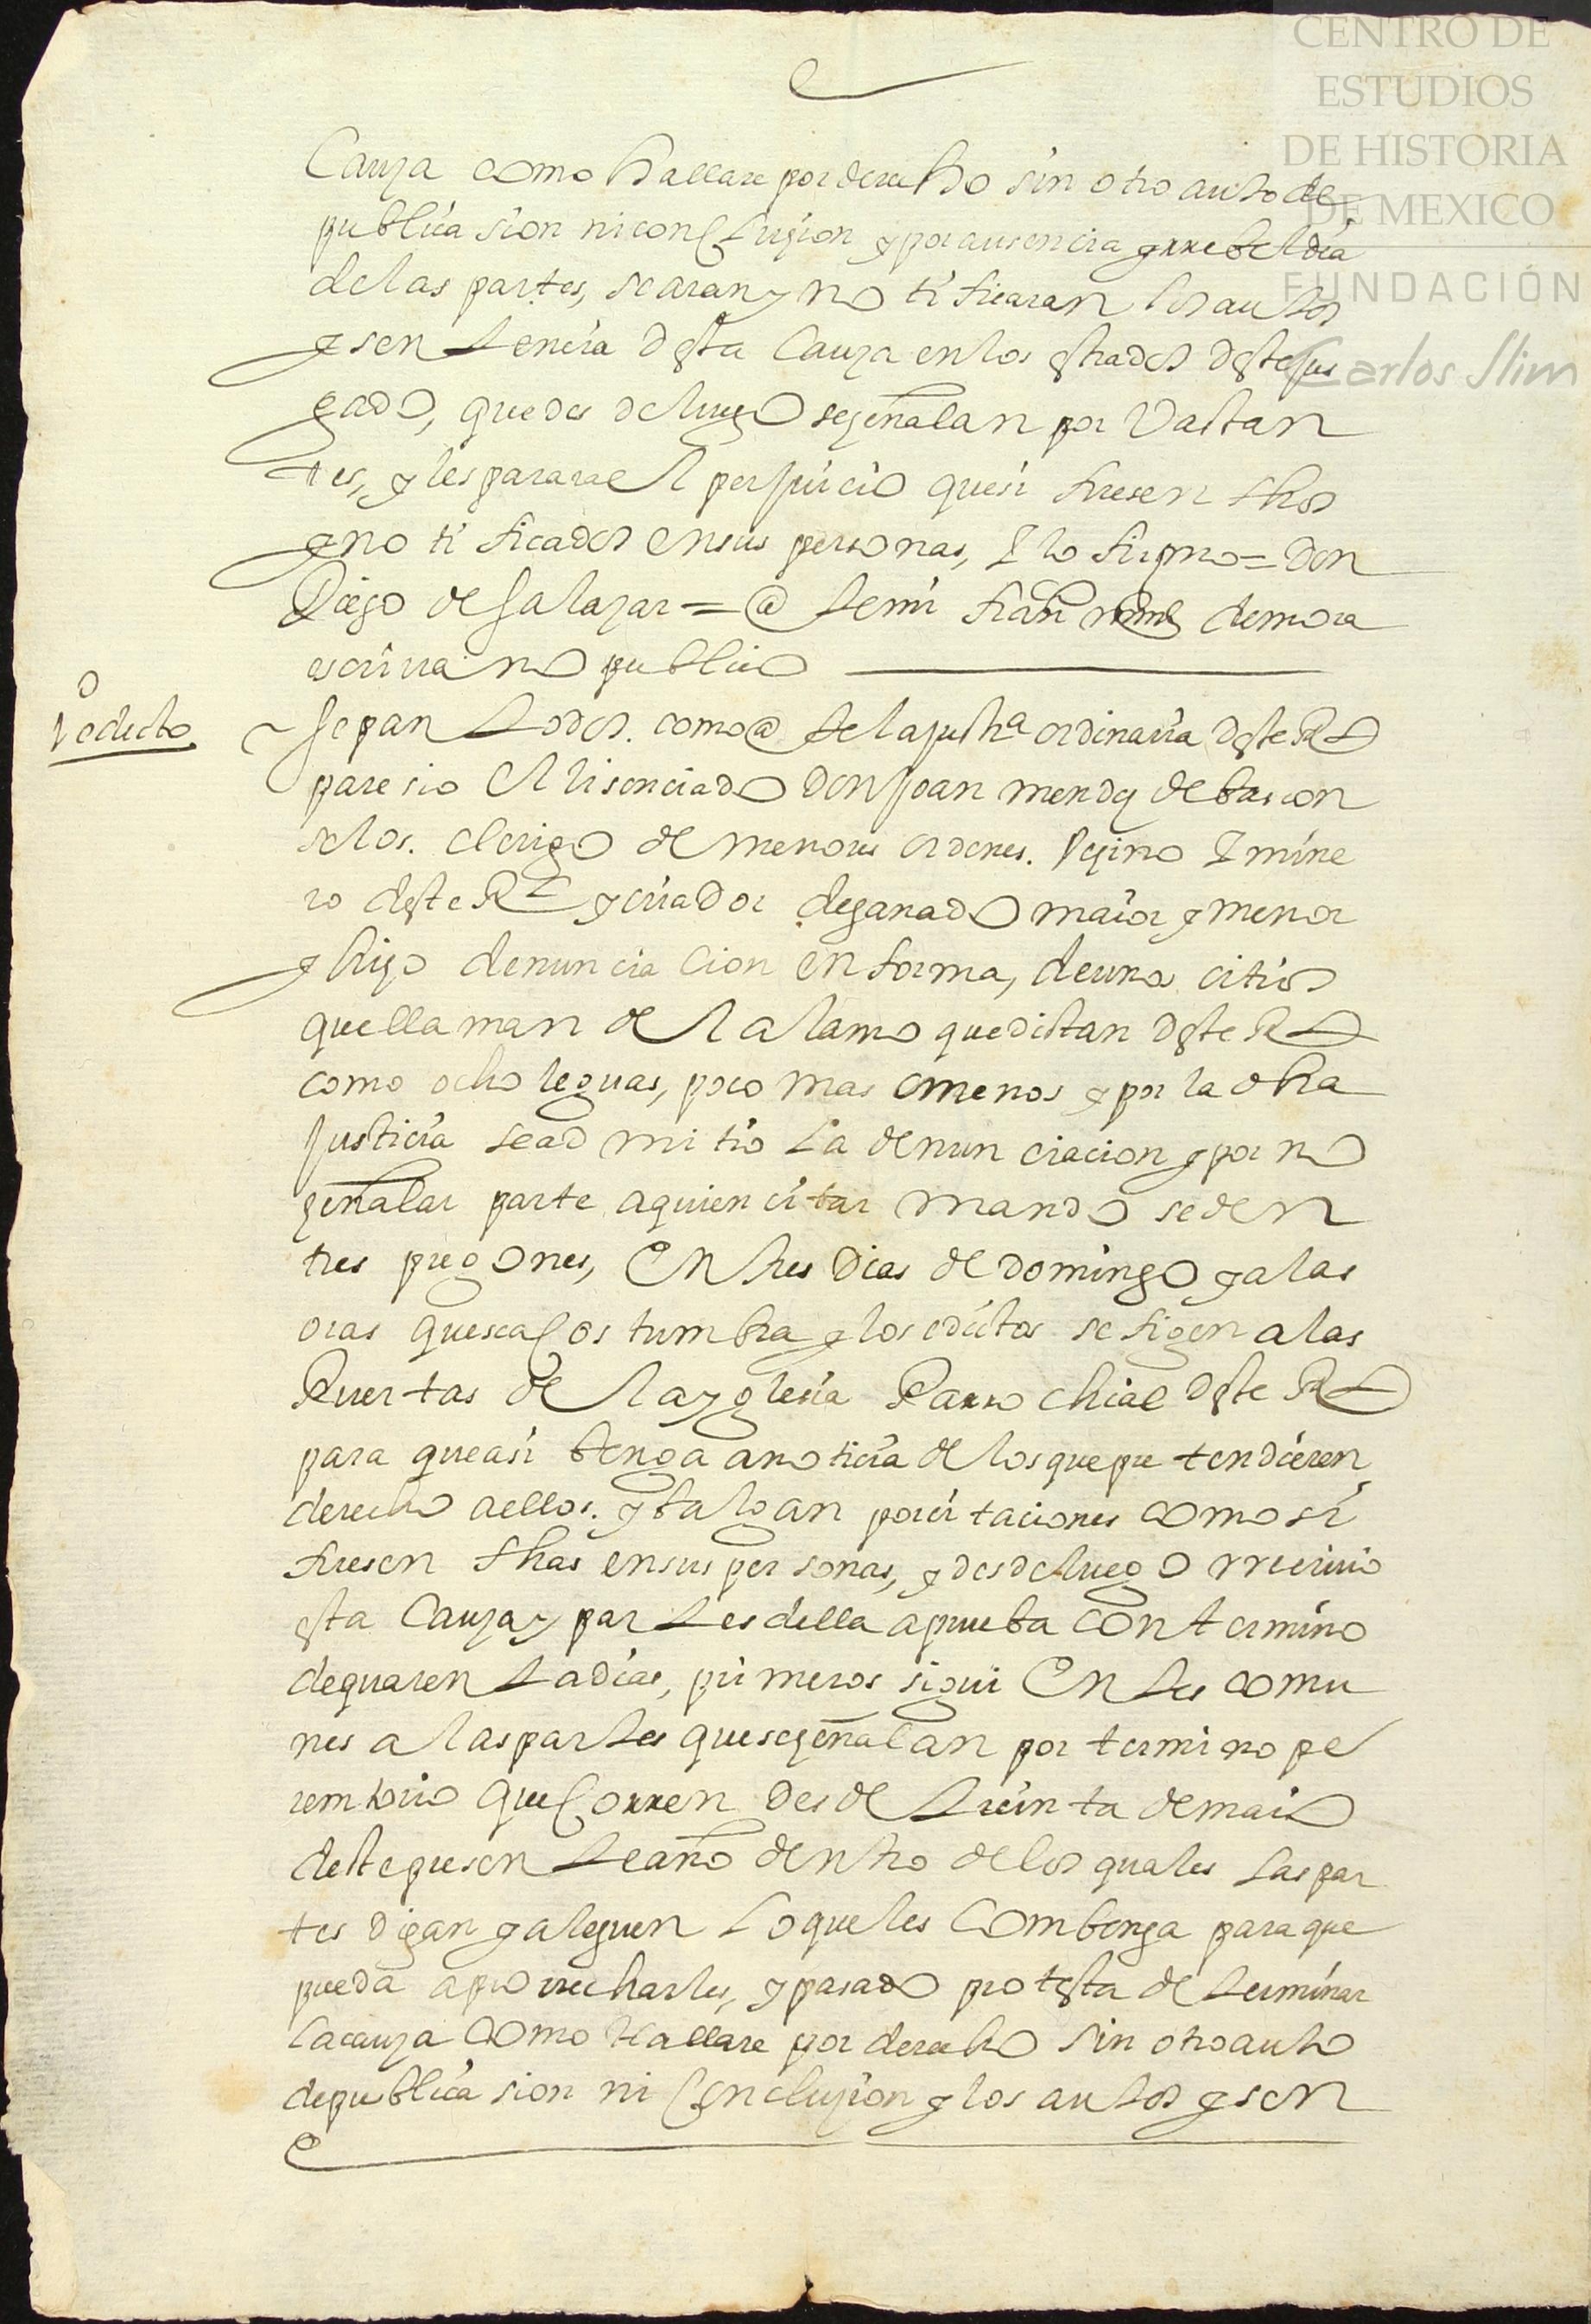 CENTRO DE
ESTUDIOS
DE HISTORIA
DE MEXICO
FUNDACIÓN
Carlos Slim
Cauza como hallare por derecho sin otro auto de
publica sion ni conclusion y por ausencia y rrebeldia
de las partes, se aran y no tificaran los autos
y sen tencia desta Cauza en los estrados deste jus
gado, que des de luego se señalan por Vastan
tes, y les parara el perjuicio que si fuesen fhos
y no ti ficados en sus personas, Y lo firmo = Don
Diego de salazar = @ te mi fran de mora
escriua no publico
1º edicto
sepan todos. como @ te la justª ordinaria deste Rl
paresio el lisenciado Don Joan mendes de bascon
selos. clerigo de menores ordenes. Vezino Y mine
ro deste Rl y criador de ganado maior y menor
y hizo denuncia cion en forma, de unos citios
que llaman del alamo que distan deste Rl
como ocho leguas, poco mas o menos y por la dha
justicia se ad mi tio la denun ciacion y por no
señalar parte a quien citar mando se den
tres preg ones, en tres Dias de domingo y a las
oras que se acos tumbra y los edictos se figen a las
Puertas de la yglesia Parro chial deste Rl
para que asi benga a noticia de los que pre tendieren
derecho a ellos. y balgan por ci taciones como si
fuesen fhas en sus per sonas, y des de lueg o rreciuio
esta Cauza y par tes della a prueba con termino
de quaren ta dias, primeros sigui en tes comu
nes a las partes que se señalan por termino pe
remtorio que Corren des de treinta de maio
deste presen te año dentro de los quales las par
tes digan y aleguen lo que les combenga para que
pueda aprouecharles, y pasado protesta de terminar
la cauza como Hallare por derecho sin otro auto
de publica sion ni Conclusion y los autos y sen